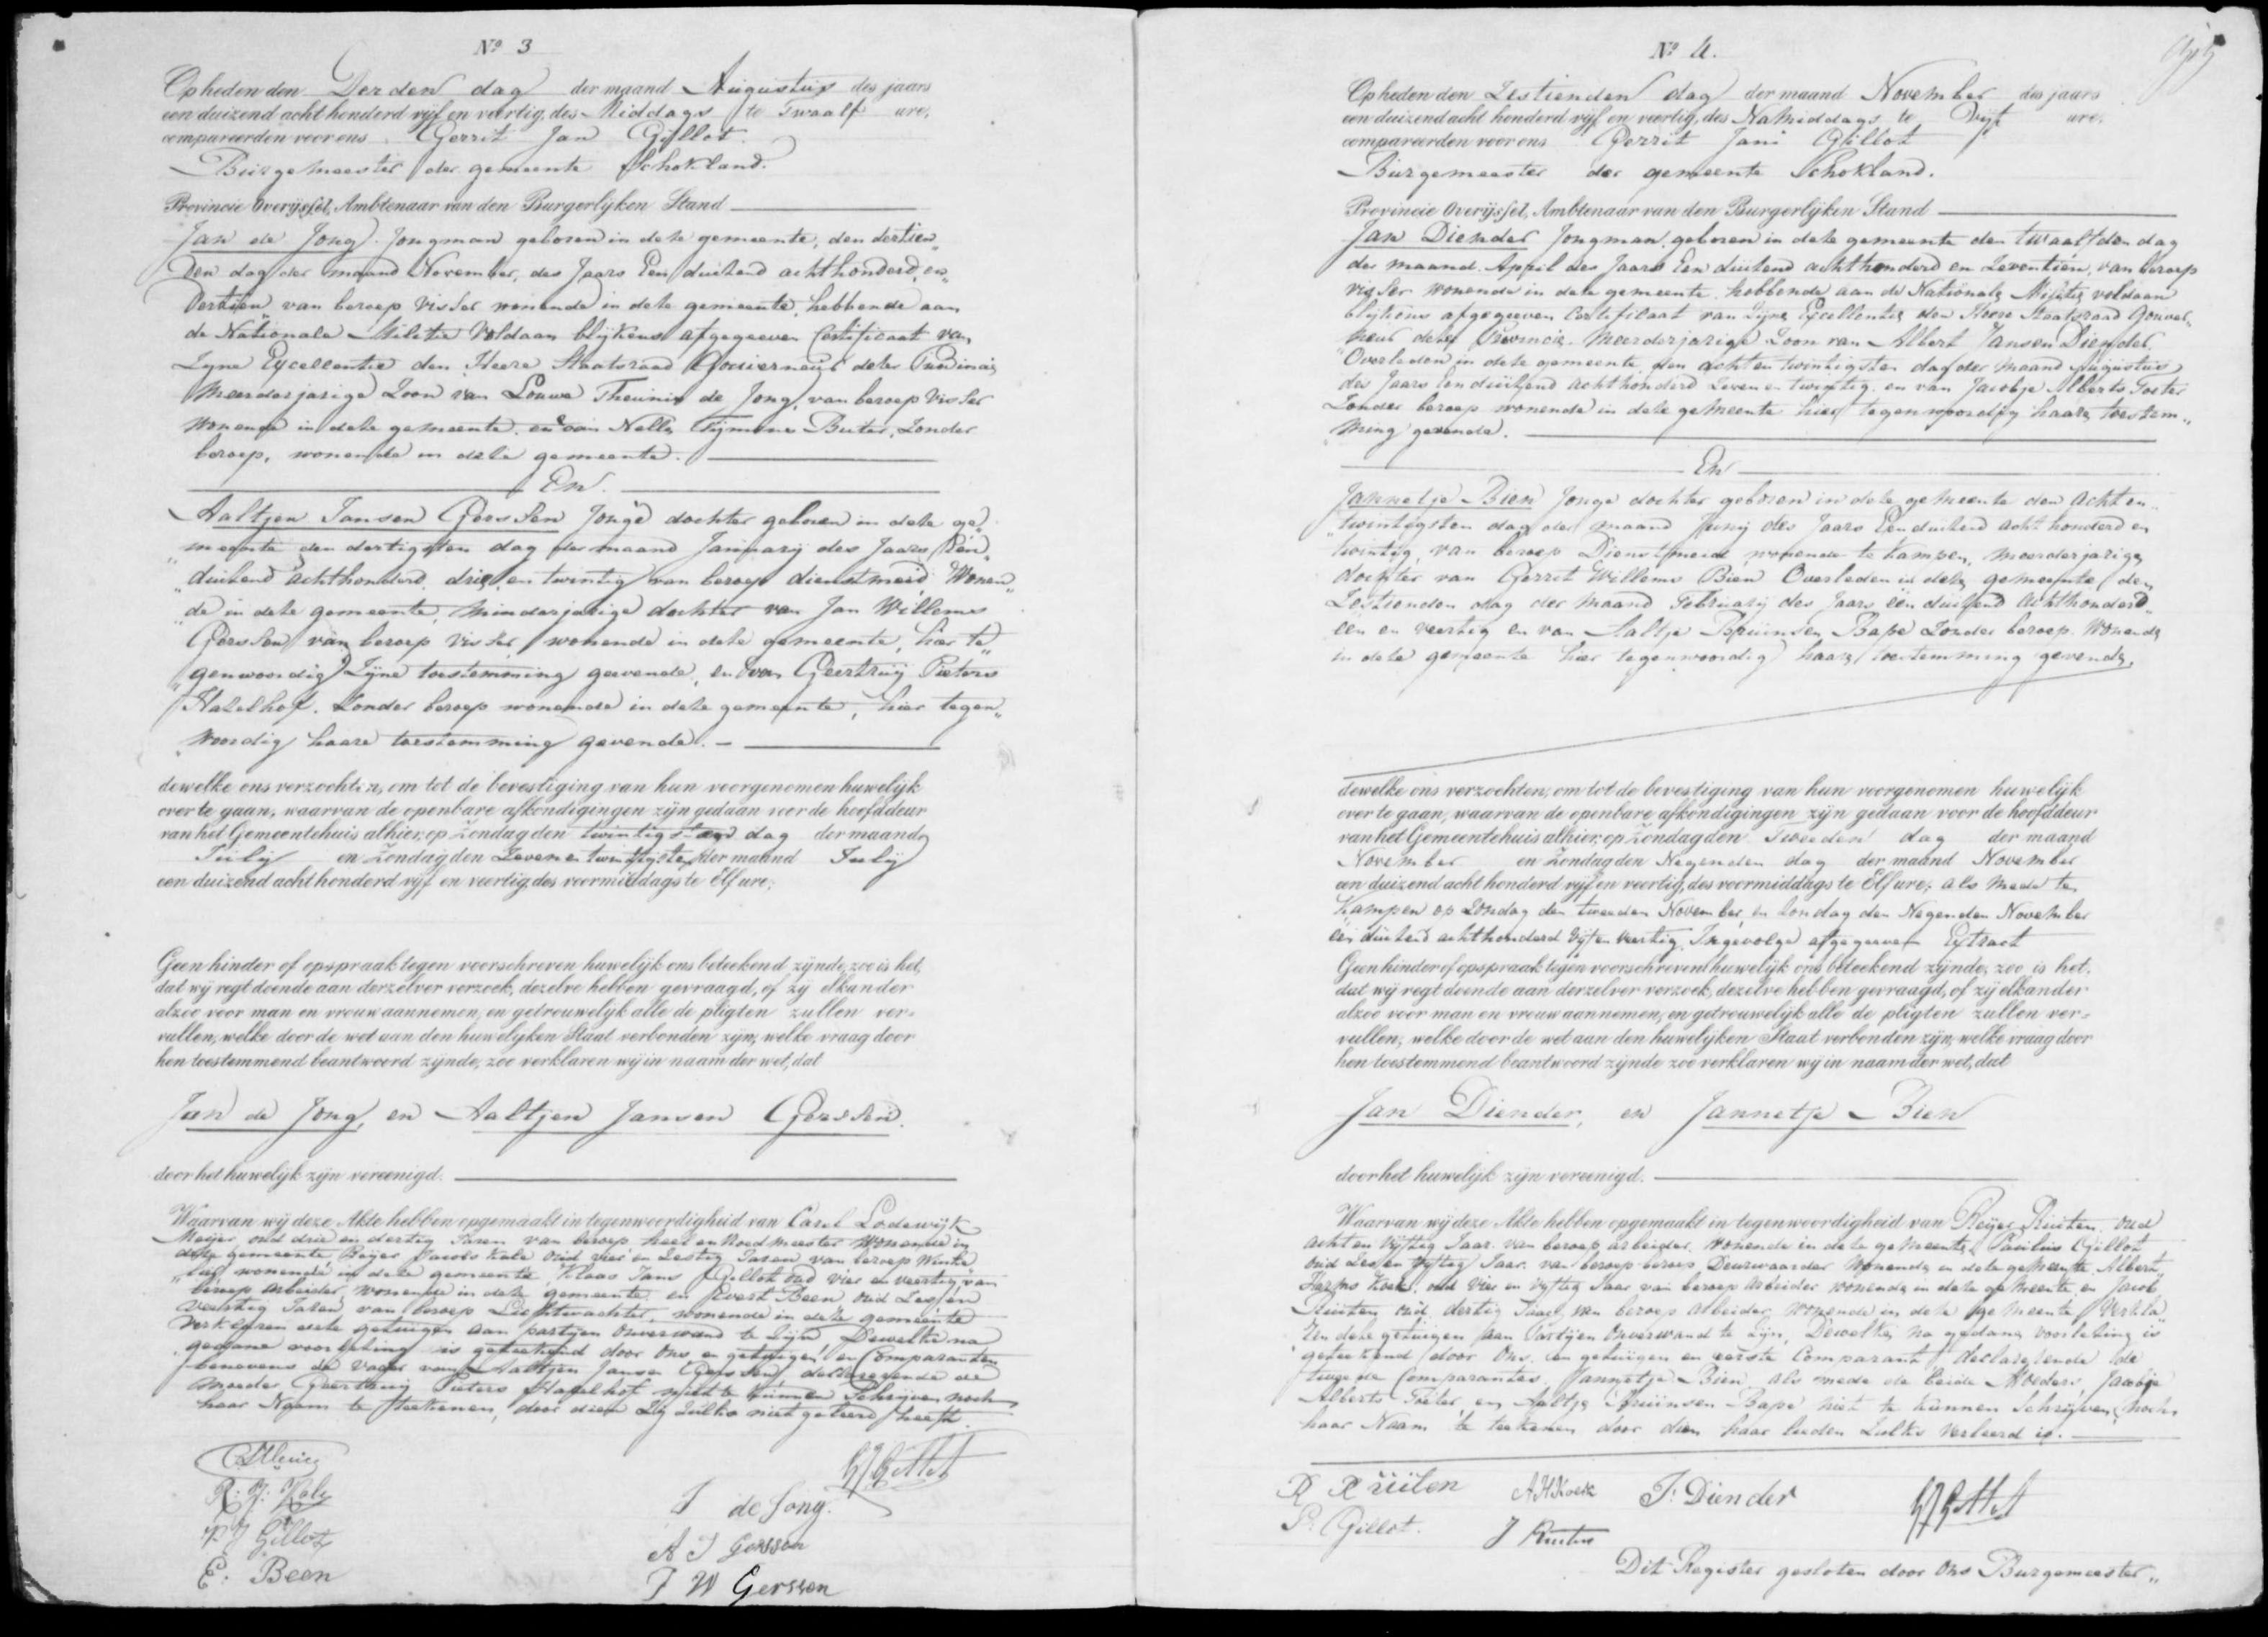 No 3
Opheden den Derden dag der maand Augustus des jaars
een duizend acht honderd vijf en veertig, des Middags te Twaalf ure,
compareerden voor ons Gerrit Jan Gillot
Burgemeester der gemeente Schokland.
Provincie Overijssel, Ambtenaar van den Burgerlijken Stand
Jan de Jong. Jongman geboren in deze gemeente, den dertien„
den dag der maand November, des Jaars Een duizend achthonderd, en„
Dertien„ van beroep visser wonende in deze gemeente, hebbende aan
de Nationale Militie Voldaan blijkens afgegeeven Certificaat van
Zyne Excellentie den Heere Staatsraad Gouverneur dezer Provincie
Meerderjarige Zoon van Louwe Theunis de Jong, van beroep visser
wonende in deze gemeente, en van Nelle Tijmens Buter, Zonder
beroep, wonende in deze gemeente.
En.
Aaltjen Jansen Gerssen Jonge dochter geboren in deze ge„
„meente den dertigsten dag der maand January des Jaars Een„
„duizend achthonderd, drie, en twintig van beroep dienstmeid Wonen„
„de in deze gemeente, minderjarige dochter van Jan Willems
Gerssen van beroep visser, wonende in deze gemeente, hier te„
„genwoordig Zijne toestemming gevende, en van Geertruij Pieters
Hazelhof. Zonder beroep wonende in deze gemeente, hier tegen„
„woordig haare toestemming gevende. —
dewelke ons verzochten, om tot de bevestiging van hun voorgenomen huwelijk
over te gaan, waarvan de openbare afkondigingen zijn gedaan voor de hoofddeur
van het Gemeentehuis alhier, op Zondag den twintigsten dag der maand
Julij en Zondag den Zevenentwintigsten der maand Julij
een duizend acht honderd vijf en veertig, des voormiddags te Elf ure;
Geen hinder of opspraak tegen voorschreven huwelijk ons beteekend zijnde, zoo is het,
dat wij regt doende aan derzelver verzoek, dezelve hebben gevraagd, of zij elkander
alzoo voor man en vrouw aannemen, en getrouwelijk alle de pligten zullen ver=
vullen, welke door de wet aan den huwelijken Staat verbonden zijn; welke vraag door
hen toestemmend beantwoord zijnde, zoo verklaren wij in naam der wet, dat
Jan de Jong, en Aaltjen Jansen Gerssen.
door het huwelijk zijn vereenigd.
Waarvan wij deze Akte hebben opgemaakt in tegenwoordigheid van Carel Lodewijk
Meijer, oud drie en dertig Jaren van beroep heel en vroedmeester Wonende in
deze gemeente, Reijer Jacobs Kale oud vier en Zestig Jaren van beroep Winke„
„lier wonende in deze gemeente, Klaas Jans Gillot oud vier en veertig, van
beroep Arbeider, wonende in deze gemeente en Evert Been oud Zes en
veertig Jaren van beroep Lichtwachter, wonende in deze gemeente
verklaren deze getuigen aan partijen onverwand te zijn, Dewelke na
gedane voorlezing is geteekend door ons en getuigen en Comparanten
benevens de vader van Aaltjen Jansen Gerssen, declareerende de
moeder Geertruij Pieters Hazelhof niet te kunnen Schrijven noch
haar Naam te teekenen, door dien Zij Zulks niet geleerd heeft.
C L Meijer
R. J. Kale
GJ Gillot
J de Jong.
Gillot
A J Gerssen
E. Been
J W Gerssen
No 4.
Opheden den Zestienden dag der maand November des jaars
een duizend acht honderd vijf en veertig, des Namiddags te Vijf ure,
compareerden voor ons Gerrit Jan Gillot
Burgemeester der gemeente Schokland.
Provincie Overijssel, Ambtenaar van den Burgerlijken Stand
Jan Diender Jongman, geboren in deze gemeente den twaalfden dag
der maand April des Jaars Een duizend achthonderd en Zeventien, van beroep
visser wonende in deze gemeente, hebbende aan de Nationale Militie voldaan
blijkens afgegeeven Certificaat van Zijne Excellentie den Heere Staatsraad Gouver„
neur dezer Provincie. Meerderjarige Zoon van Albert Jansen Diender
Overleden in deze gemeente, den acht en twintigsten dag der maand Augustus
des Jaars Een duizend achthonderd Zeven en twintig, en van Jacobje Alberts Toeter
Zonder beroep wonende in deze gemeente hier tegenwoordig haare toestem„
„ming gevende.
En
Jannetje Bien Jonge dochter geboren in deze gemeente den acht en„
„twintigsten dag der maand Junij des Jaars Een duizend acht honderd en
twintig, van beroep Dienstmeid wonende te Kampen, meerderjarige
dochter van Gerrit Willems Bien Overleden in deze gemeente den
Zestienden dag der maand February des Jaars een duizend achthonderd„
een en veertig en van Aaltje Bruinsen Bape Zonder beroep Wonende
in deze gemeente hier tegenwoordig haare toestemming gevende.
dewelke ons verzochten, om tot de bevestiging van hun voorgenomen huwelijk
over te gaan, waarvan de openbare afkondigingen zijn gedaan voor de hoofddeur
van het Gemeentehuis alhier, op Zondag den Tweeden dag der maand
November en Zondag den Negenden dag der maand November
een duizend acht honderd vijf en veertig, des voormiddags te Elf ure; als mede te
Kampen op Zondag den tweeden November, en Zondag den Negenden November
een duizend achthonderd vijf en veertig. Ingevolge afgegeeven Extract
Geen hinder of opspraak tegen voorschreven huwelijk ons beteekend zijnde, zoo is het,
dat wij regt doende aan derzelver verzoek, dezelve hebben gevraagd, of zij elkander
alzoo voor man en vrouw aannemen, en getrouwelijk alle de pligten zullen ver=
vullen, welke door de wet aan den huwelijken Staat verbonden zijn, welke vraag door
hen toestemmend beantwoord zijnde zoo verklaren wij in naam der wet, dat
Jan Diender, en Jannetje Bien
door het huwelijk zijn vereenigd.
Waarvan wij deze Akte hebben opgemaakt in tegenwoordigheid van Reijer Ruiten, oud
acht en Vijftig Jaar. van beroep arbeider. wonende in deze gemeente, Paulus Gillot
oud Zes en vijftig Jaar. van beroep beroep Deurwaarder Wonende in deze gemeente. Albert
Harms Koek, oud vier en vijftig Jaar van beroep Arbeider wonende in deze gemeente, en Jacob
Ruiten, oud dertig Jaar, van beroep Arbeider, wonende in deze gemeente Verkla„
„ren deze getuigen aan Partijen Onverwand te zijn, Dewelke na gedane voorlezing is
geteekend door Ons, en getuigen en eerste Comparant, declareerende de
tweede Comparante, Jannetje Bien, als mede de beide Moeders, Jacobje
Alberts Toeter, en Aaltje Bruinsen Bape niet te kunnen Schrijven, noch
haar Naam te teekenen door dien haar lieden Zulks verleerd is.
R Ruiten
A H Koek
J: Diender
P. Gillot.
J Ruiten
GJ Gillot
Dit Register gesloten door Ons Burgemeester„